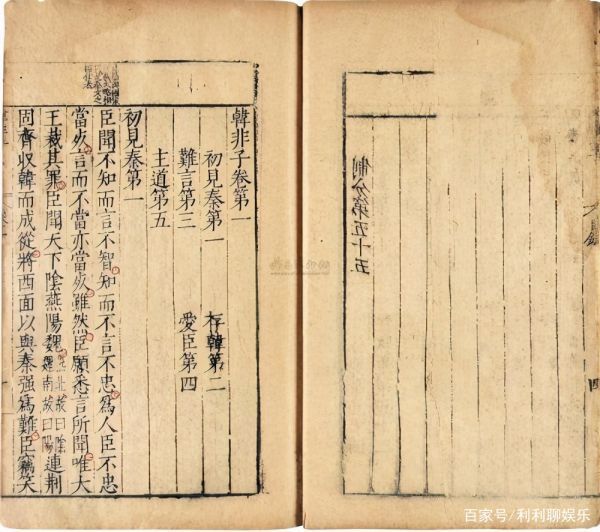 制分第五十五
四
韓非子卷第一
初見秦第一 存韓第二
難言第三 愛臣第四
主道第五
初見秦第一
臣聞不知而言不智知而不言不忠爲人臣不忠
當死言而不當亦當死雖然臣願悉言所聞唯大
王裁其罪臣聞天下陰燕陽魏燕北故曰陰魏南故曰陽連荆
固齊収韓而成從將西面以與秦强爲難臣竊笑
百家号/利利聊娱乐